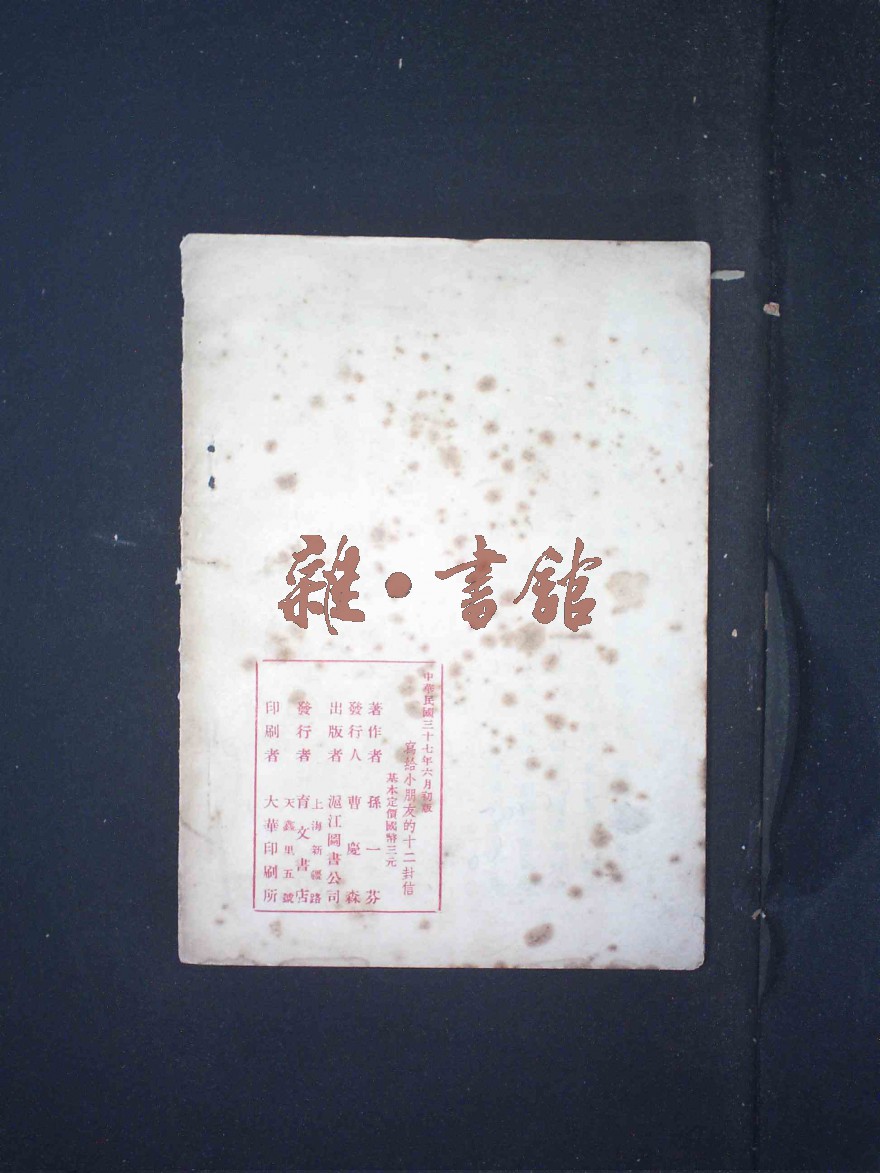 雜·書館
中華民國三十七年六月初版
寫給小朋友的十二封信
基本定價國幣三元
著作者 孫一芬
發行人 曹慶森
出版者 滬江圖書公司
發行者 育文書店
上海新疆路
天鑫里五號
印刷者 大華印刷所